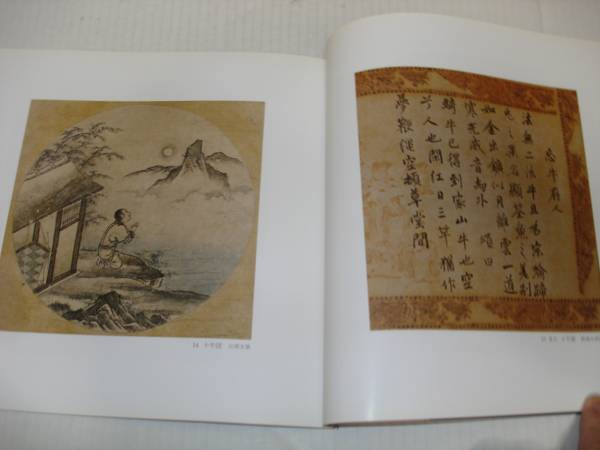 忘牛存人
法無二法牛且爲宗喻蹄
兎之異名顯筌魚之差別
如金出鑛似月離雲一道
寒光威音劫外 頌曰
騎牛已得到家山牛也空
兮人也閑紅日三竿猶作
夢鞭繩空頓草堂間
14 十牛図
十牛図